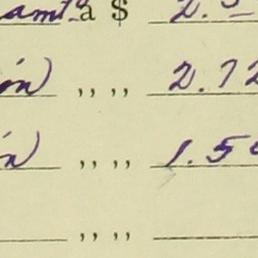 amt. à $ 2.5
in) ,, ,, 2.72
n) ,, ,, 1.50
,, ,,